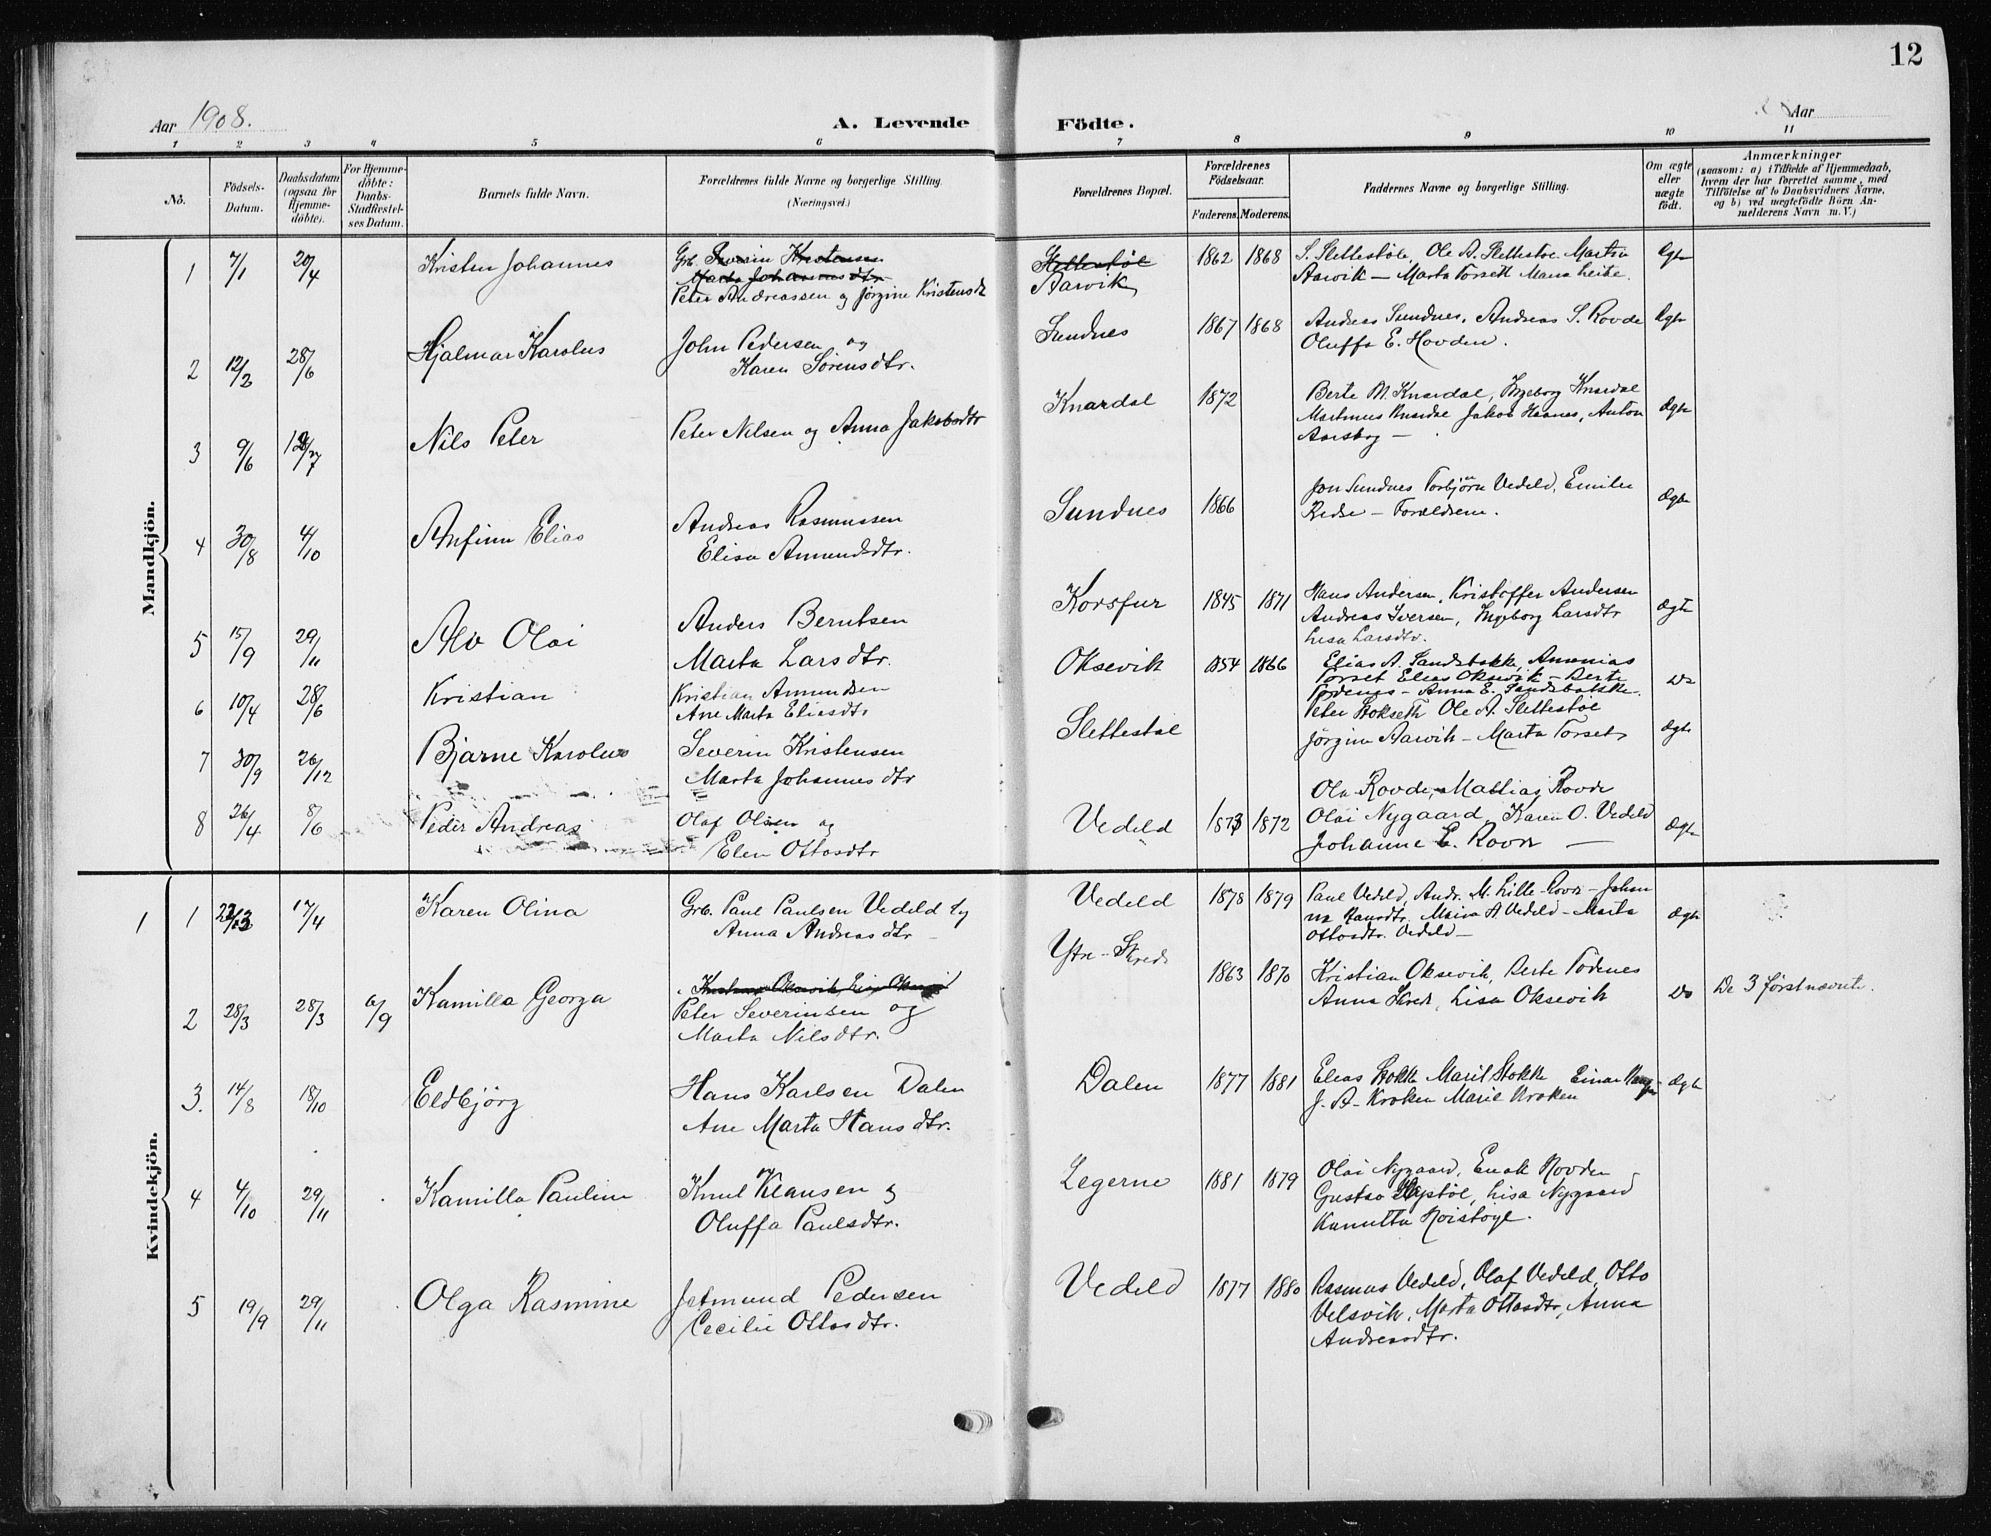 12
Aar 1908.
A. Levende Födte.
Aar
1 2 3 4 5 6 7 8 9 10 11
No.
Födsels-Datum.
Daabsdatum (ogsaa for Hjemme-döbte).
For Hjemme-döbte: Daabs-Stadfæstel-ses Datum.
Barnets fulde Navn.
Forældrenes fulde Navne og borgerlige Stilling. (Næringsvei.)
Forældrenes Bopæl.
Forældrenes Födselsaar.
Faderens. Moderens.
Faddernes Navne og borgerlige Stilling.
Om ægte eller uægte födt.
Anmærkninger
(saasom: a) i Tilfælde af Hjemmedaab, hvem der har forrettet samme, med Tilföielse af to Daabsvidners Navne, og b) ved uægtefödte Börn An-melderens Navn m. V.)
Mandkjön.
1 7/1 20/4 Kristen Johannes Grb. Severin Kristensen Slettestöl 1862 1868 S. Slettestöle, Ole A. Slettestöe Martin Egte
Marta Johannesdtr Aarvik Aarvik — Marta Torsett Maria Leite.
Peter Andreassen og Jørgine Kristensdt
2 12/2 28/6 Hjalmar Karolus John Pedersen og Sundnes 1867 1868 Andreas Sundnes, Andreas S. Rovde Egte
Karen Sörensdtr. Oluffa E. Hovden.
3 9/6 Nils Peter Peter Nilsen og Anna Jakobsdtr Knardal 1872 Berte M. Knardal, Ingeborg Knardal Ægte
Martinus Knardal Jakob Haanes, Anton
4 30/8 4/10 Anfinn Elias Andreas Rasmussen Sundnes 1866 Jon Sundnes Torbjörn Vedeld, Emilie Ægte
Elisa Amundsdtr. — Forældrene.
5 15/9 29/11 Alv Olai Anders Berntsen Korsfur 1845 1871 Hans Andersen, Kristoffer Andersen Ægte
Marta Larsdtr. Andreas Iversen, Ingeborg Larsdtr
Lisa Larsdtr.
6 10/4 28/6 Kristian Kristian Amundsen Oksevik 1854 1866 Elias A. Sandsbakke, Ananias Do
Ane Marta Eliasdtr Torset Elias Oksevik — Berte
Todenes — Anna E. Sandsbakke.
7 30/9 26/12 Bjarne Karolus Severin Kristensen Slettestöl Peter Stokseth Ole A. Slettestöl Ægte
Marta Johannesdtr Jörgine Aarvik — Marta Torset
8 26/4 8/6 Peder Andreas Olaf Olsen og Vedeld 1873 1872 Ola Rovde, Mattias Rovde Ægte
Elen Ottosdtr Olai Nygaard, Karen O. Vedeld
Johanne E. Rovde —
Kvindekjön.
1 1 17/4 Karen Olina Grb. Paul Paulsen Vedeld og Vedeld 1878 1879 Paul Vedeld, Andr. M. Lille-Rovde — Johan Ægte
Anna Andreasdtr — na Hansdtr, Maria A Vedeld — Marta
Ottosdtr. Vedeld —
2 28/3 28/3 6/9 Kamilla Georga Kristian Oksevik, Ytre-Skrede 1863 1870 Kristian Oksevik, Berte Todenes Do De 3 förstnævnte.
Peter Severinsen og Anna Skrede, Lisa Oksevik
Marta Nilsdtr.
3. 14/8 18/10 Eldbjörg Hans Karlsen Dalen Dalen 1877 1881 Elias Stokke Marit Stokke Einar Ægte
Ane Marta Hansdtr. J. A. Kroken Marie Kroken
4 4/10 29/11 Kamilla Pauline Knut Klausen og Legerne 1881 1879 Olai Nygaard, Enok Rovde
Oluffa Paulsdtr. Gustav, Lisa Nygaard
Kanutta
5 19/9 29/11 Olga Rasmine Jetmund Pedersen Vedeld 1877 1880 Rasmus Vedeld, Olaf Vedeld, Otto
Cecilie Ottosdtr. Velsvik, Marta Ottosdtr, Anna
Andreasdtr.